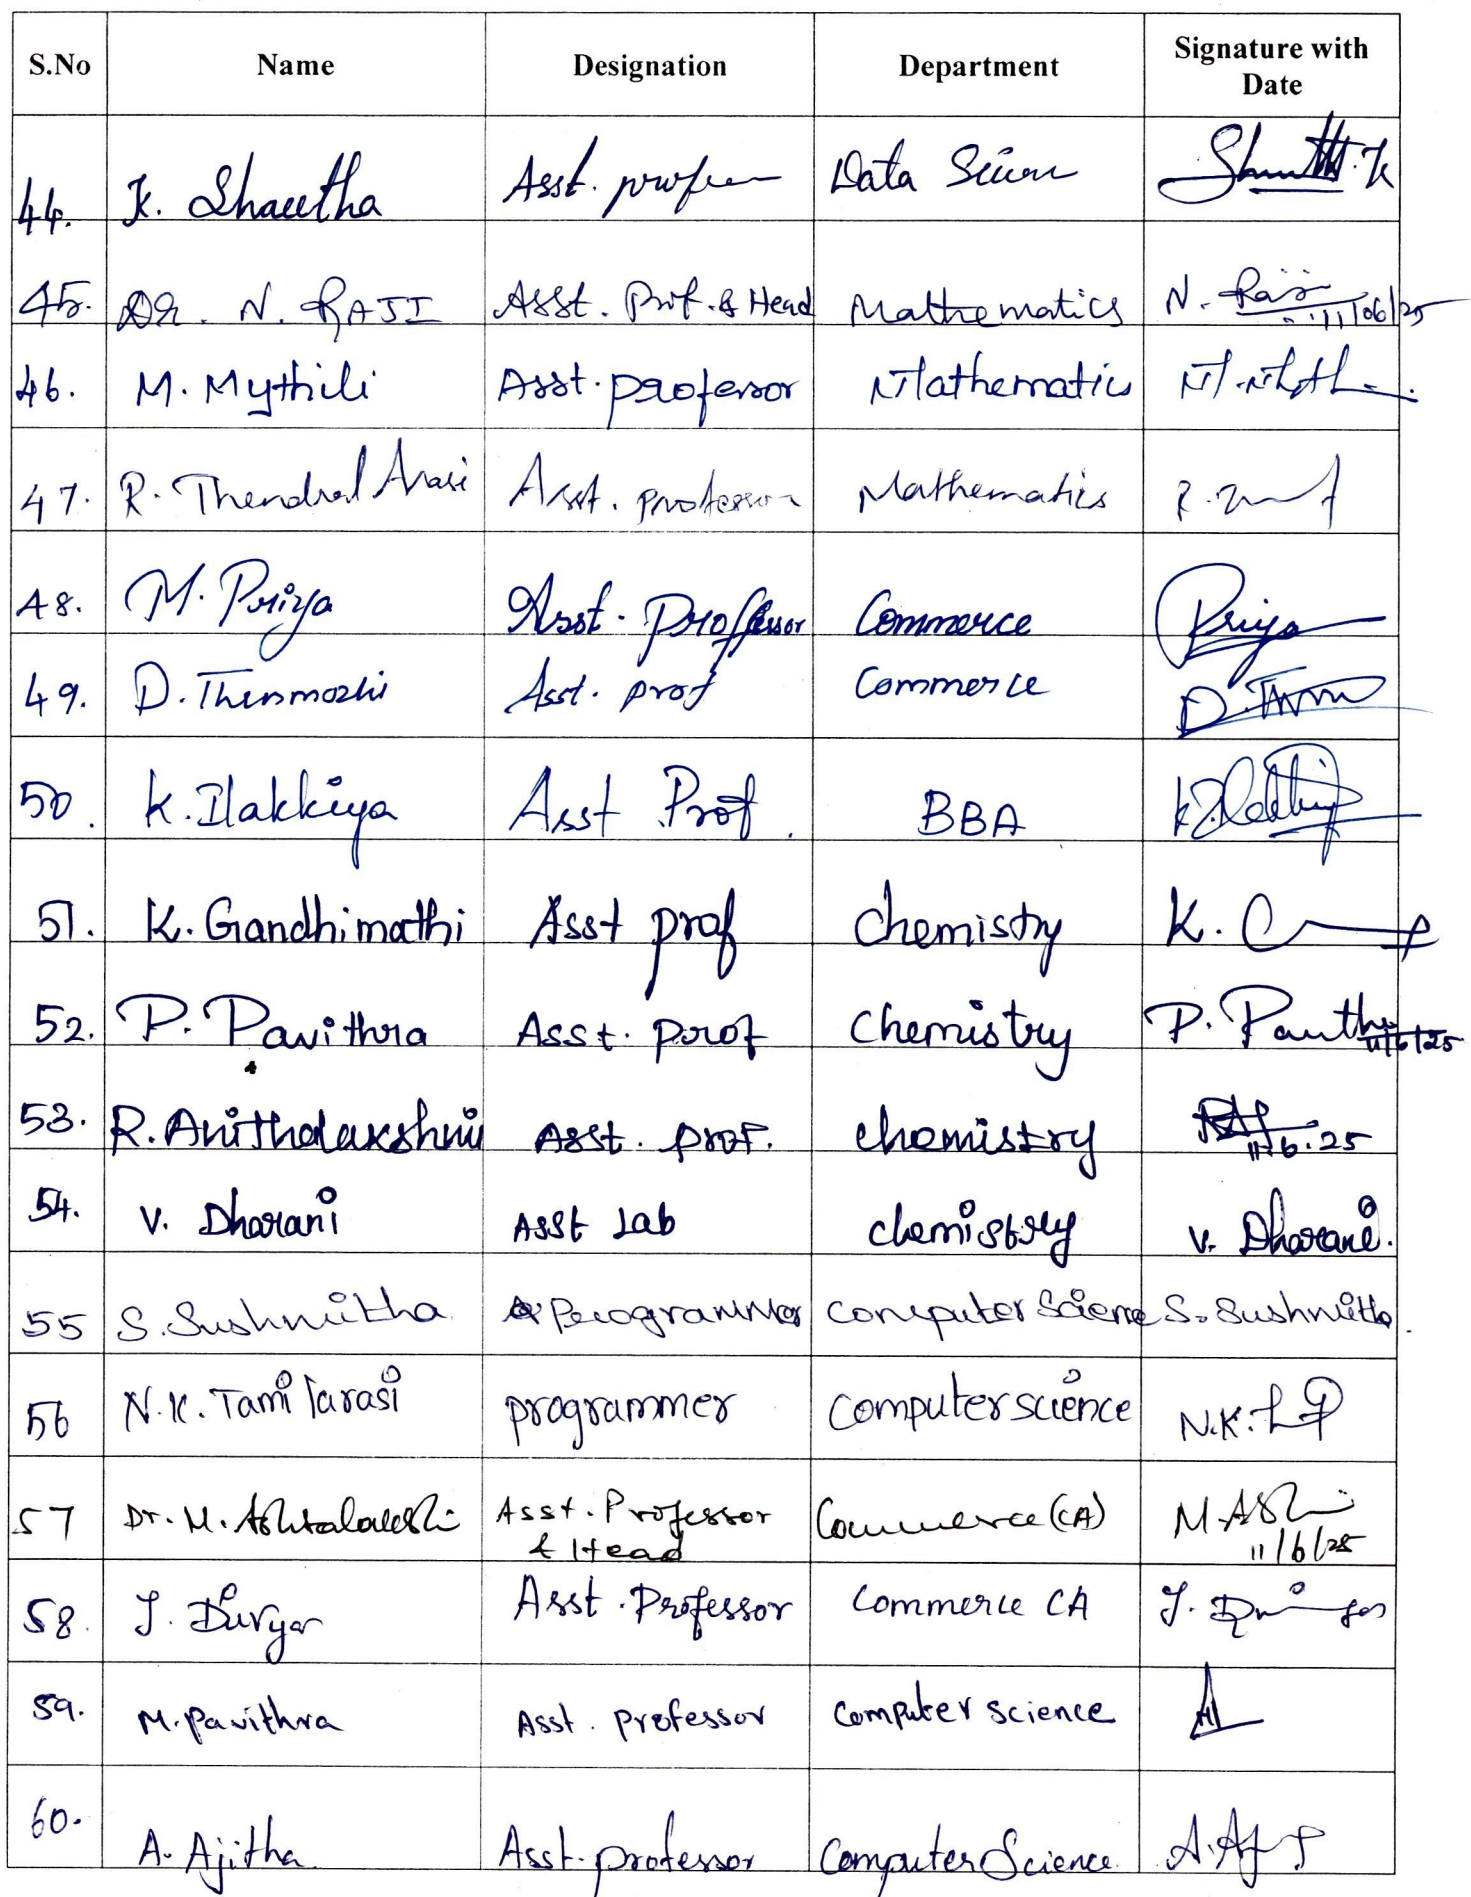 S.No Name Designation Department Signature with
Date
44. K. Asst. Data
45. Dr. N. RAJI Asst. Prof. & Head Mathematics N. Raji 11/06/25
46. M. Mythili Asst. professor Mathematics
47. R. Thendral Arasi Asst. professor Mathematics
48. M. Priya Asst. Professor Commerce Priya
49. D. Thenmozhi Asst. prof Commerce
50. K. Ilakkiya Asst Prof. BBA
51. K. Gandhimathi Asst prof chemistry K.
52. P. Pavithra Asst. prof chemistry P. 11/6/25
53. R. Anithalakshmi Asst. prof. chemistry 11.6.25
54. V. Dharani Asst Lab chemistry V. Dharani.
55 S. Sushmitha Programmer Computer Science S. Sushmitha
56 N.K. Tamilarasi programmer Computer science N.K.
57 Dr. M. Asst. Professor Commerce (CA)
& Head 11/6/25
58. J. Asst. Professor Commerce CA J.
59. M. Pavithra Asst. professor Computer science
60. A. Ajitha Asst. professor Computer Science